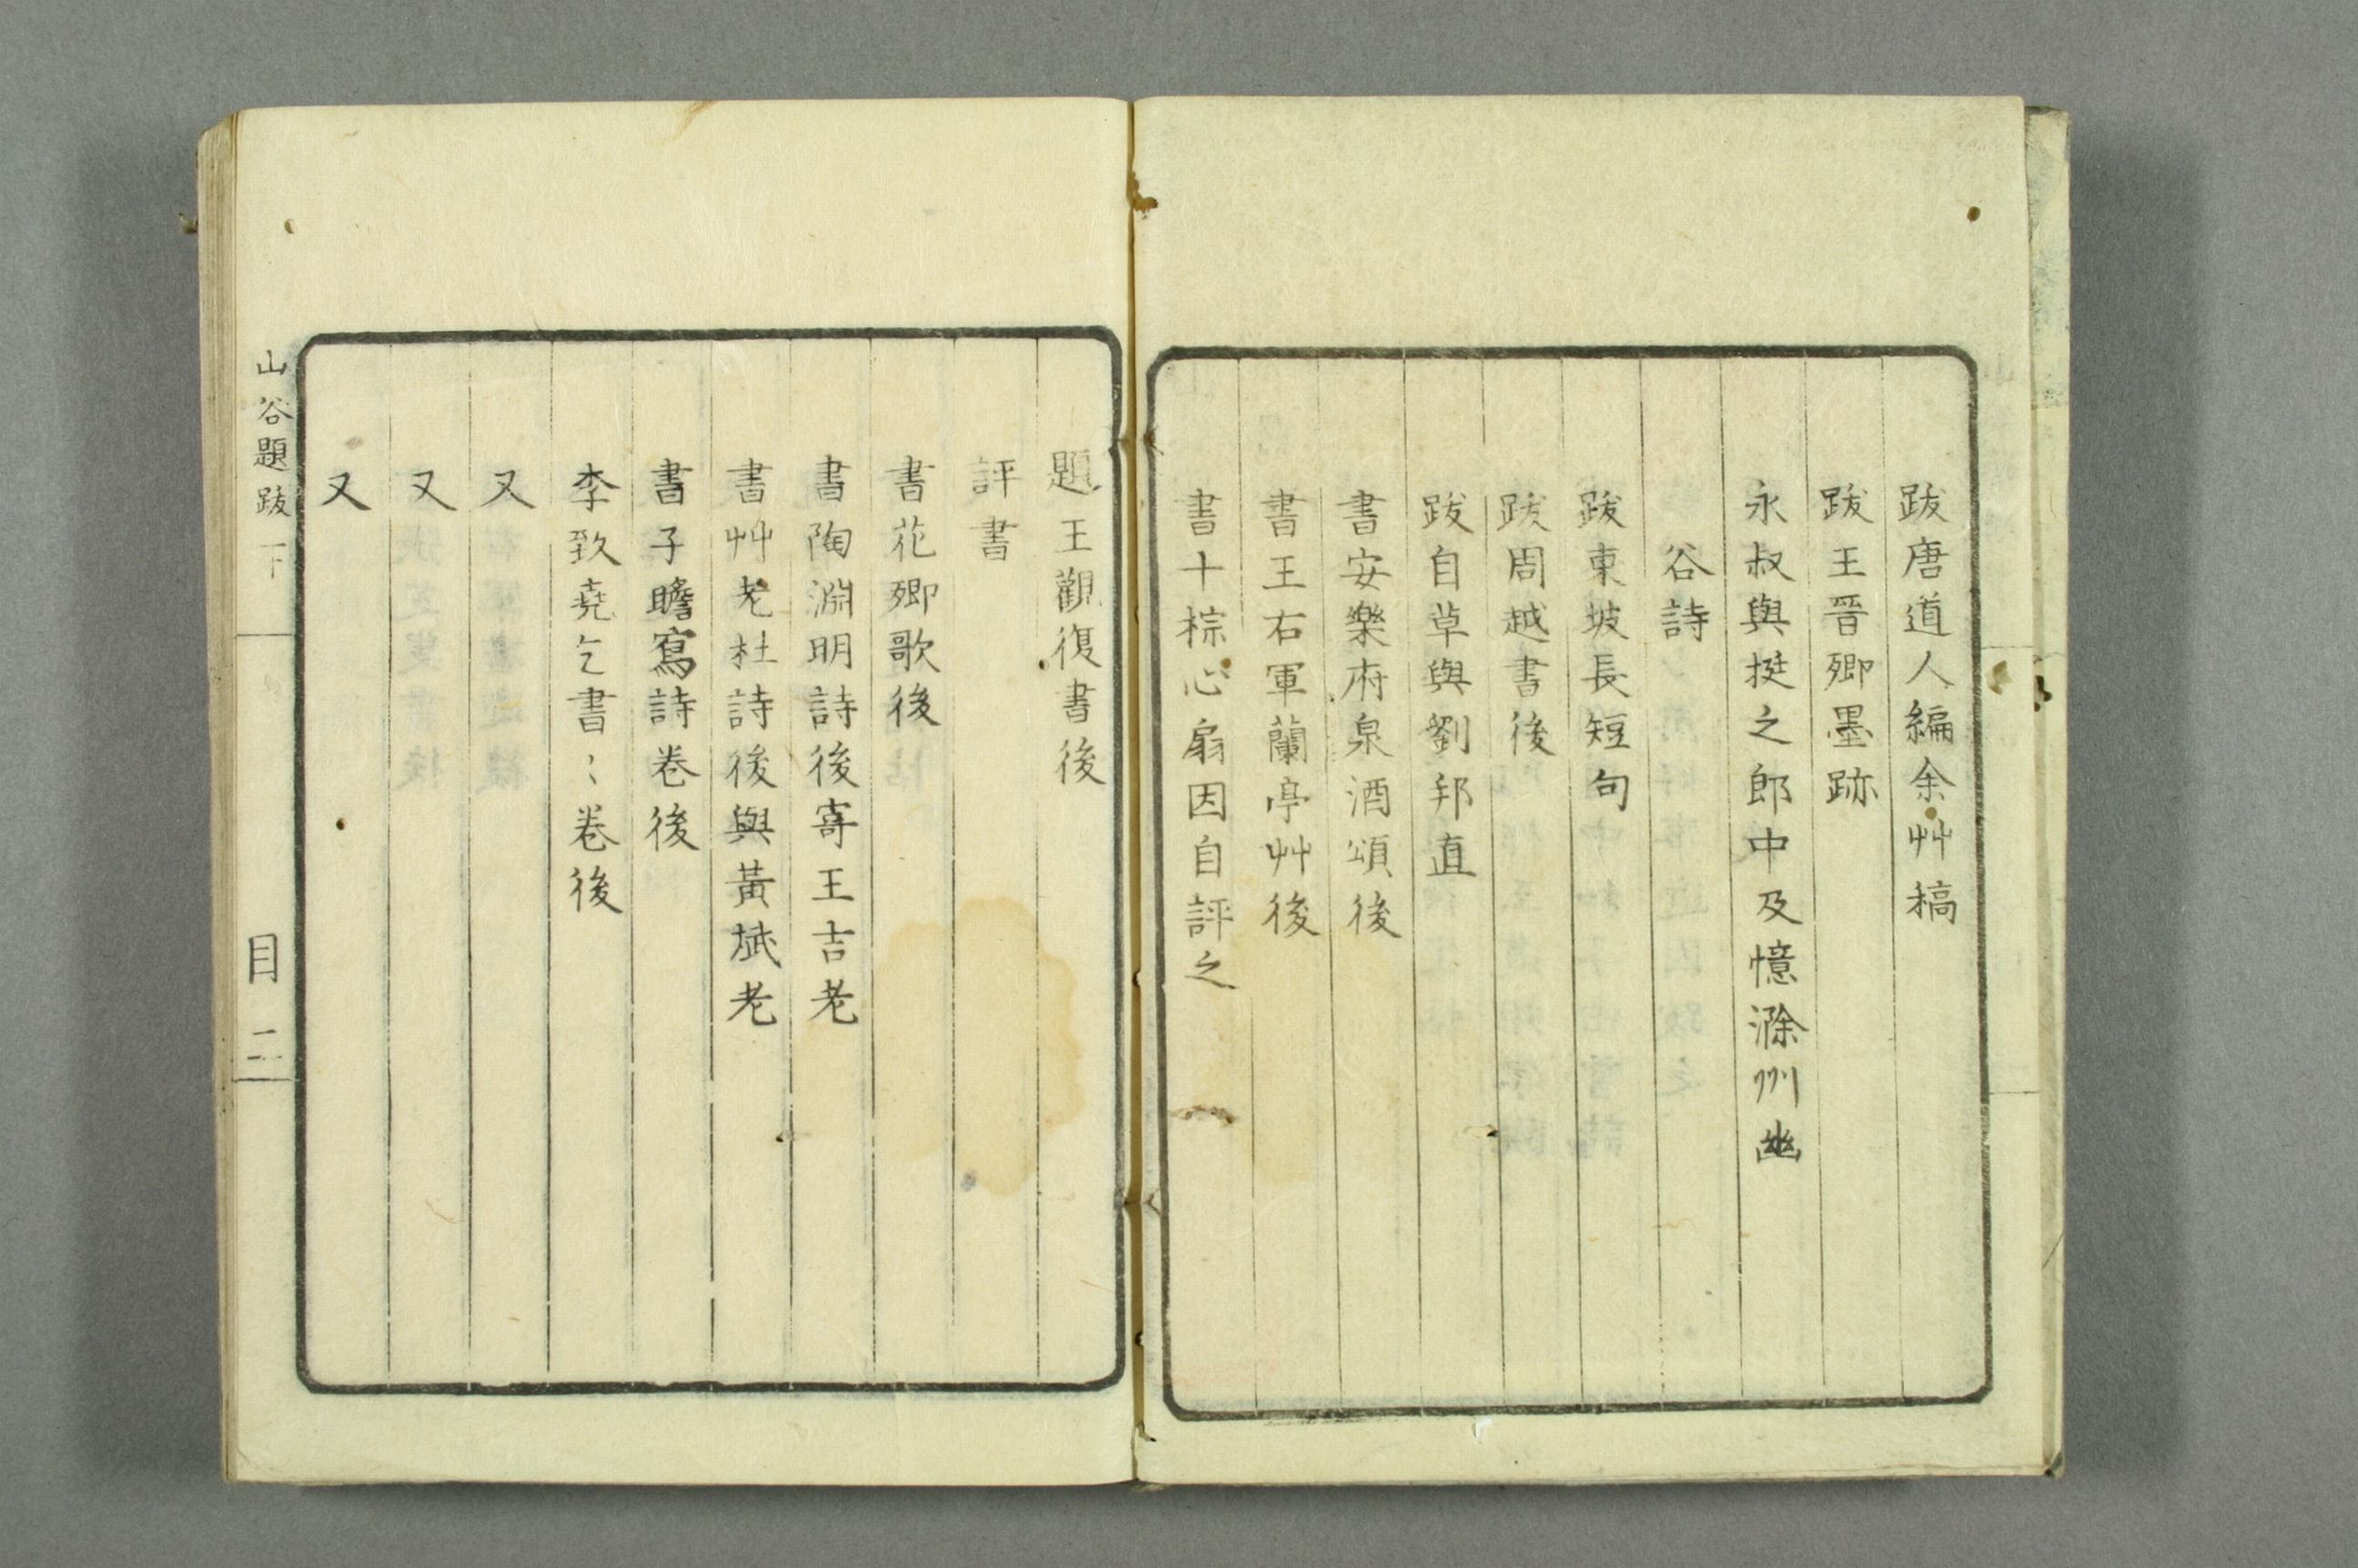 跋唐道人編余艸稿
跋王晉卿墨跡
永叔與挺之郎中及憶滁州幽
谷詩
跋東坡長短句
跋周越書後
跋自草與劉邦直
書安樂府泉酒頌後
書王右軍蘭亭艸後
書十棕心扇因自評之
題王觀復書後
評書
書花卿歌後
書陶淵明詩後寄王吉老
書艸老杜詩後與黃斌老
書子瞻寫詩卷後
李致堯乞書〻卷後
又
又
又
山谷題跋 下
目 二